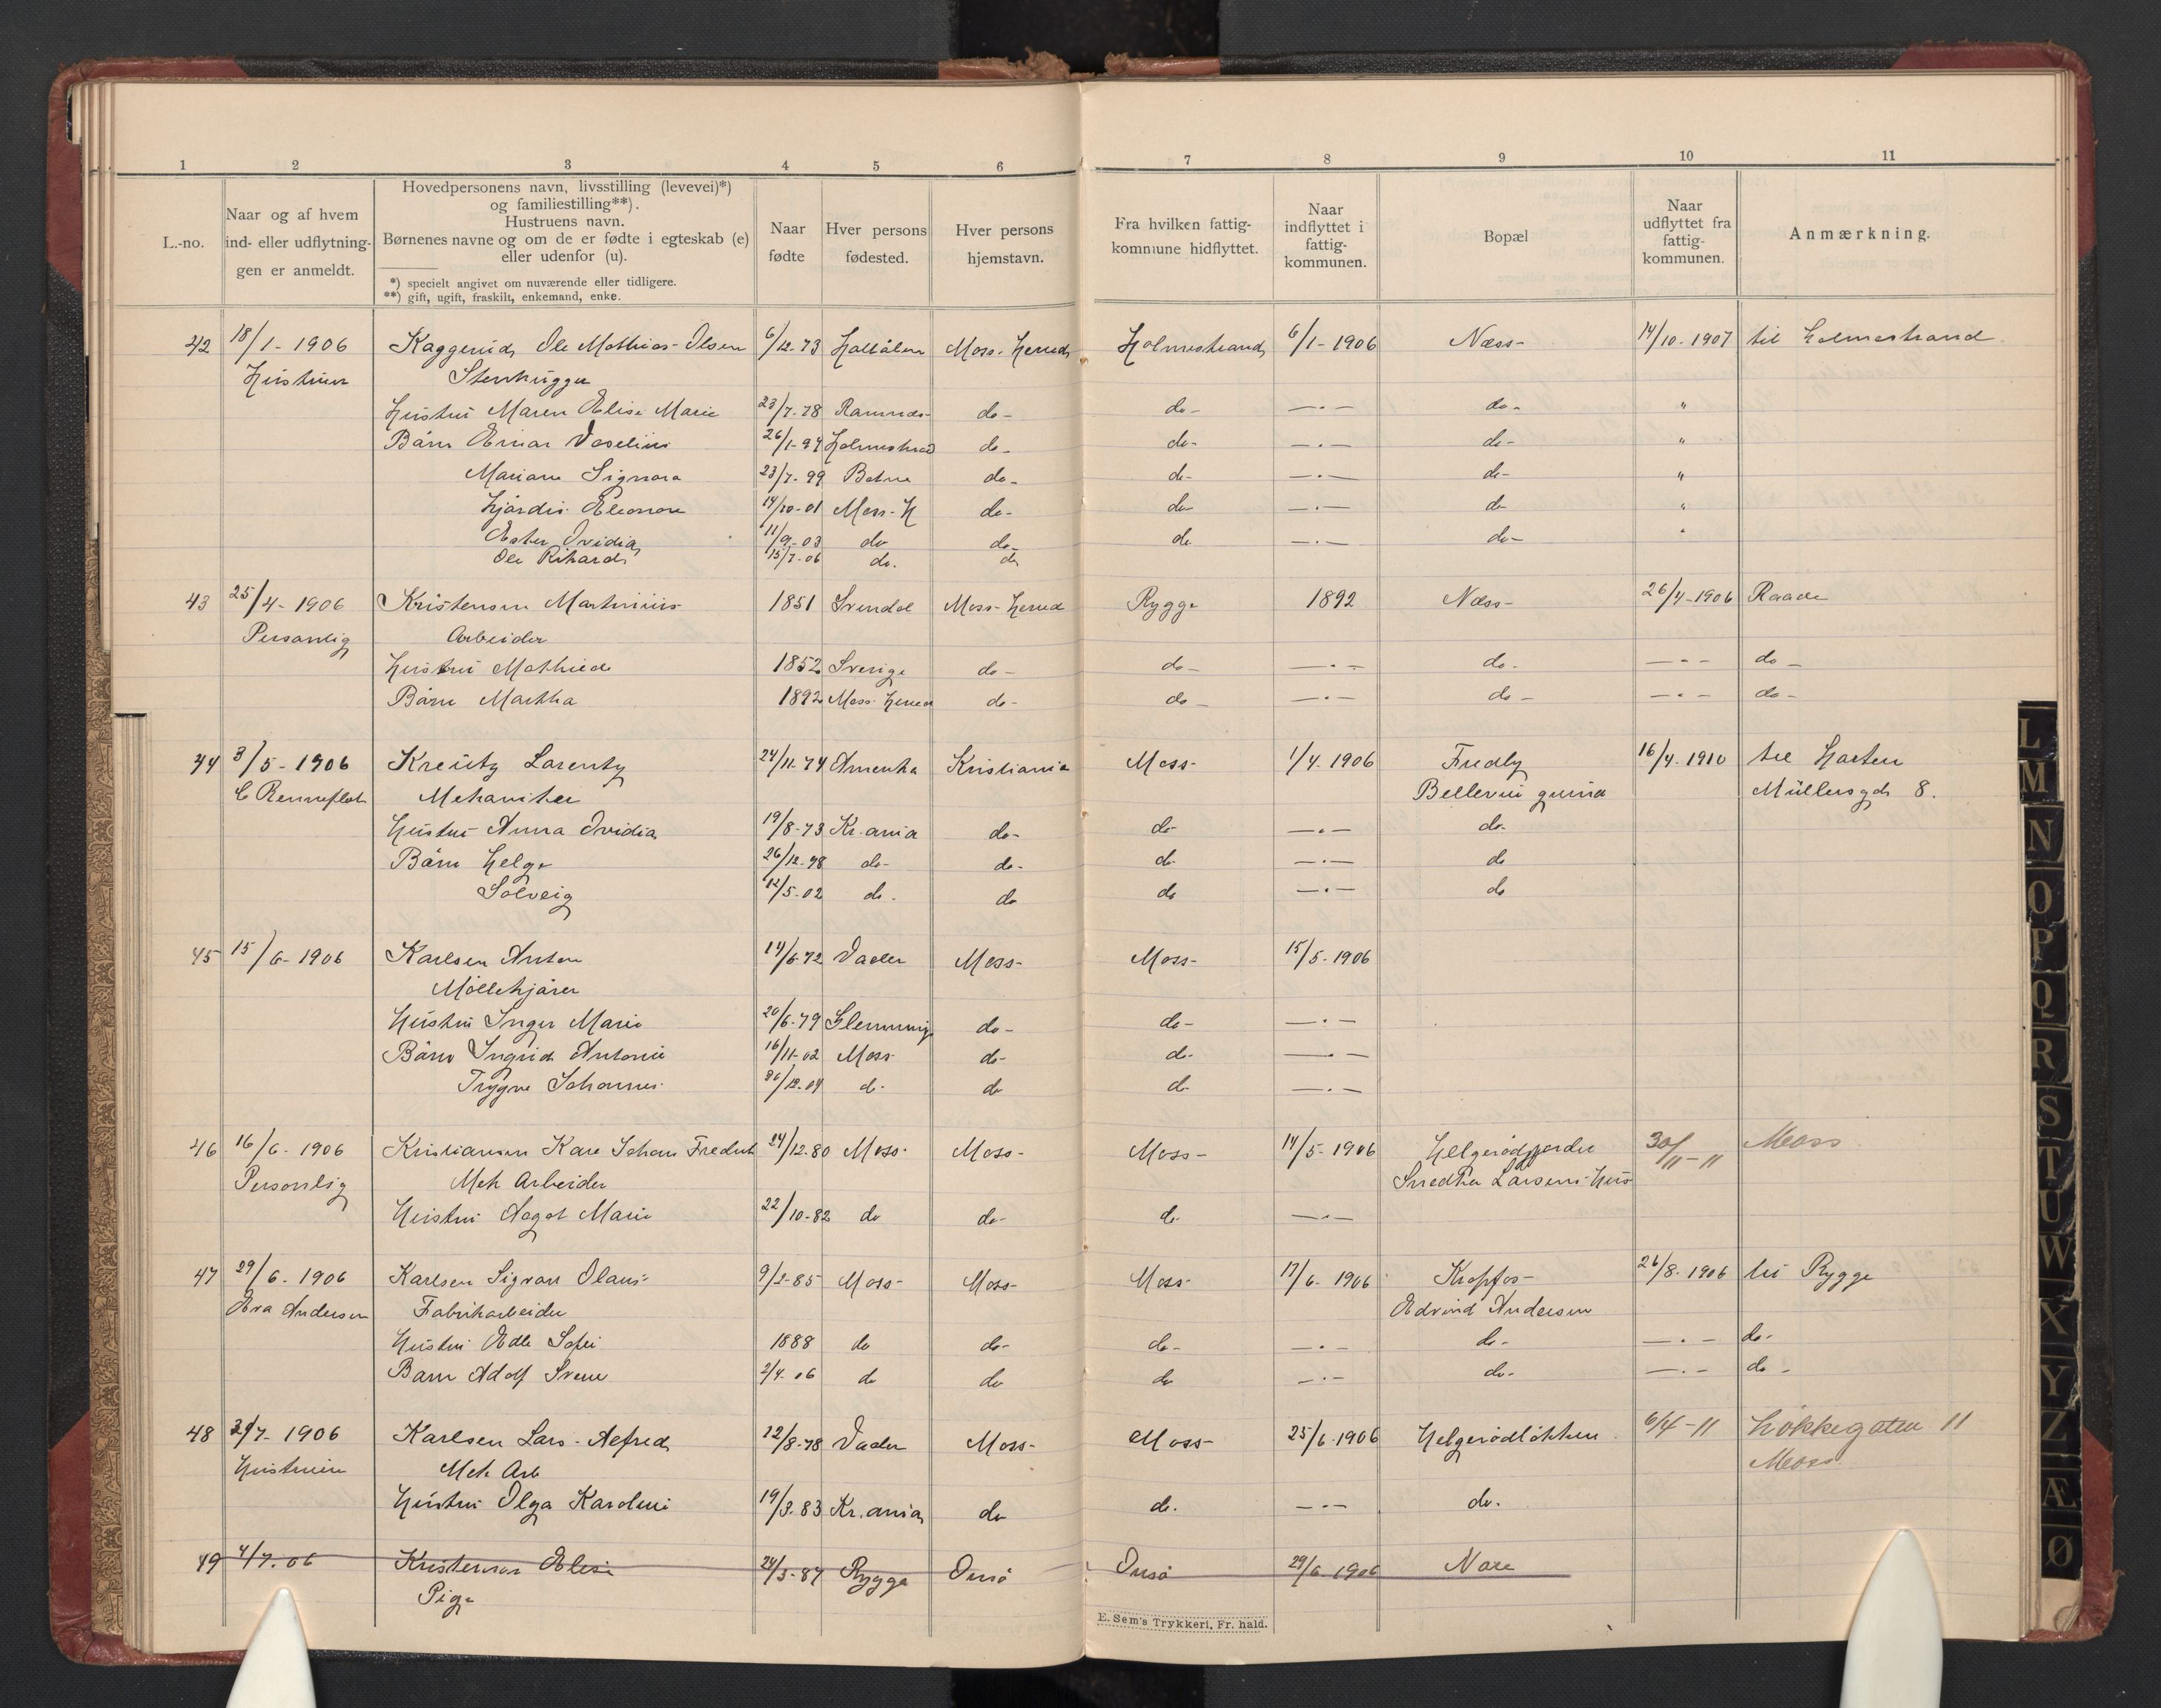 1 2 3 4 5 6 7 8 9 10 11
L.-no.
Naar og af hvem
ind- eller udflytnin-
gen er anmeldt.
Hovedpersonens navn, livsstilling (levevei)*)
og familiestilling**).
Hustruens navn.
Børnenes navne og om de er fødte i egteskab (e)
eller udenfor (u).
*) specielt angivet om nuværende eller tidligere.
**) gift, ugift, fraskilt, enkemand, enke.
Naar
fødte
Hver persons
fødested.
Hver persons
hjemstavn.
Fra hvilken fattig-
kommune hidflyttet.
Naar
indflyttet i
fattig-
kommunen.
Bopæl
Naar
udflyttet fra
fattig-
kommunen.
Anmærkning.
42 18/1-1906 Kaggerud Ole Mathias Olsen 6/12-73 Moss-Herred Holmestrand 6/1-1906 Næss- 14/10-1907 til Holmestrand
Hustruen Stenhugger
Hustru Maren Elise Marie 23/7-78 Ramnes- do- do- —·— do- "
Børn Einar 26/1-97 Holmestrand do- do- —·— do- "
Mariane Signora 23/7-99 Botne do- do- —·— do- "
Hjördis Eleonore 14/10-01 Moss-H do- do- —·— do "
Ester Ovidia 11/9-03 do do- do —·— do- "
Ole Rikard 15/7-06 do. do
43 25/4-1906 Kristensen Martinius 1851 Svindal Moss-Herred Rygge 1892 Næss- 26/4-1906 Raade
Personlig Arbeider
Hustru Mathilde 1852 Sverige do- do- —·— do- —·— do-
Børn Martha 1892 Moss Herred do- do- —·— do- —·— do-
44 3/5-1906 Kreutz Larentz 24/11-74 Amerika Kristiania Moss- 1/4 1906 Fredly 16/4-1910 til Horten
Mekaniker Müllersgd 8.
Hustru Anna Ovidia 19/8-73 Kr.ania do- do- —·— do-
Børn Helge 26/12-98 do- do- do- —·— do
Solveig 12/5-02 do- do do —·— do
45 15/6-1906 Karlsen Anton 14/6-72 Vaaler Moss- Moss- 15/5-1906
Møllekjører
Hustru Inger Marie 20/6-79 Glemminge do- do- —·—
Børn Ingrid Antonie 16/11-02 Moss do- do- —·—
Trygve Johannes 30/12-04 do- do do —·—
46 16/6-1906 Kristiansen Karl Johan Fredrik 24/12-80 Moss- Moss- Moss- 14/5-1906 Helgerødgjerdet 30/11-11 Moss
Personlig Mek Arbeider Larsens Hus
Hustru Aagot Marie 22/10-82 do do- do- —·—
47 29/6-1906 Karlsen Sigvart Olaus 9/2-85 Moss- Moss- Moss- 17/6-1906 Kropfos- 26/8-1906 til Rygge
Eva Andersen Fabrikarbeider Edvind Andersen
Hustru Edle Sofie 1888 do do- do- —·— do- —·— do-
Barn Adolf 2/4-06 do do do —·— do- —·— do-
48 2/7-1906 Karlsen Lars Alfred 12/8-78 Vaaler Moss- Moss- 25/6-1906 Helgerødløkken 6/4-11 Løkkegaten 11
Hustruen Mek Arb Moss
Hustru Olga Karoline 19/3-83 Kr.ania do do- —·— do-
49 4/7-06 Kristensen Elise 24/3-87 Rygge Onsø Onsø 29/6-1906 Nore
Pige
E. Sem's Trykkeri, Fr. hald.
L
M
N
O
P
Q
R
S
T
U
W
X
Y
Z
Æ
Ø